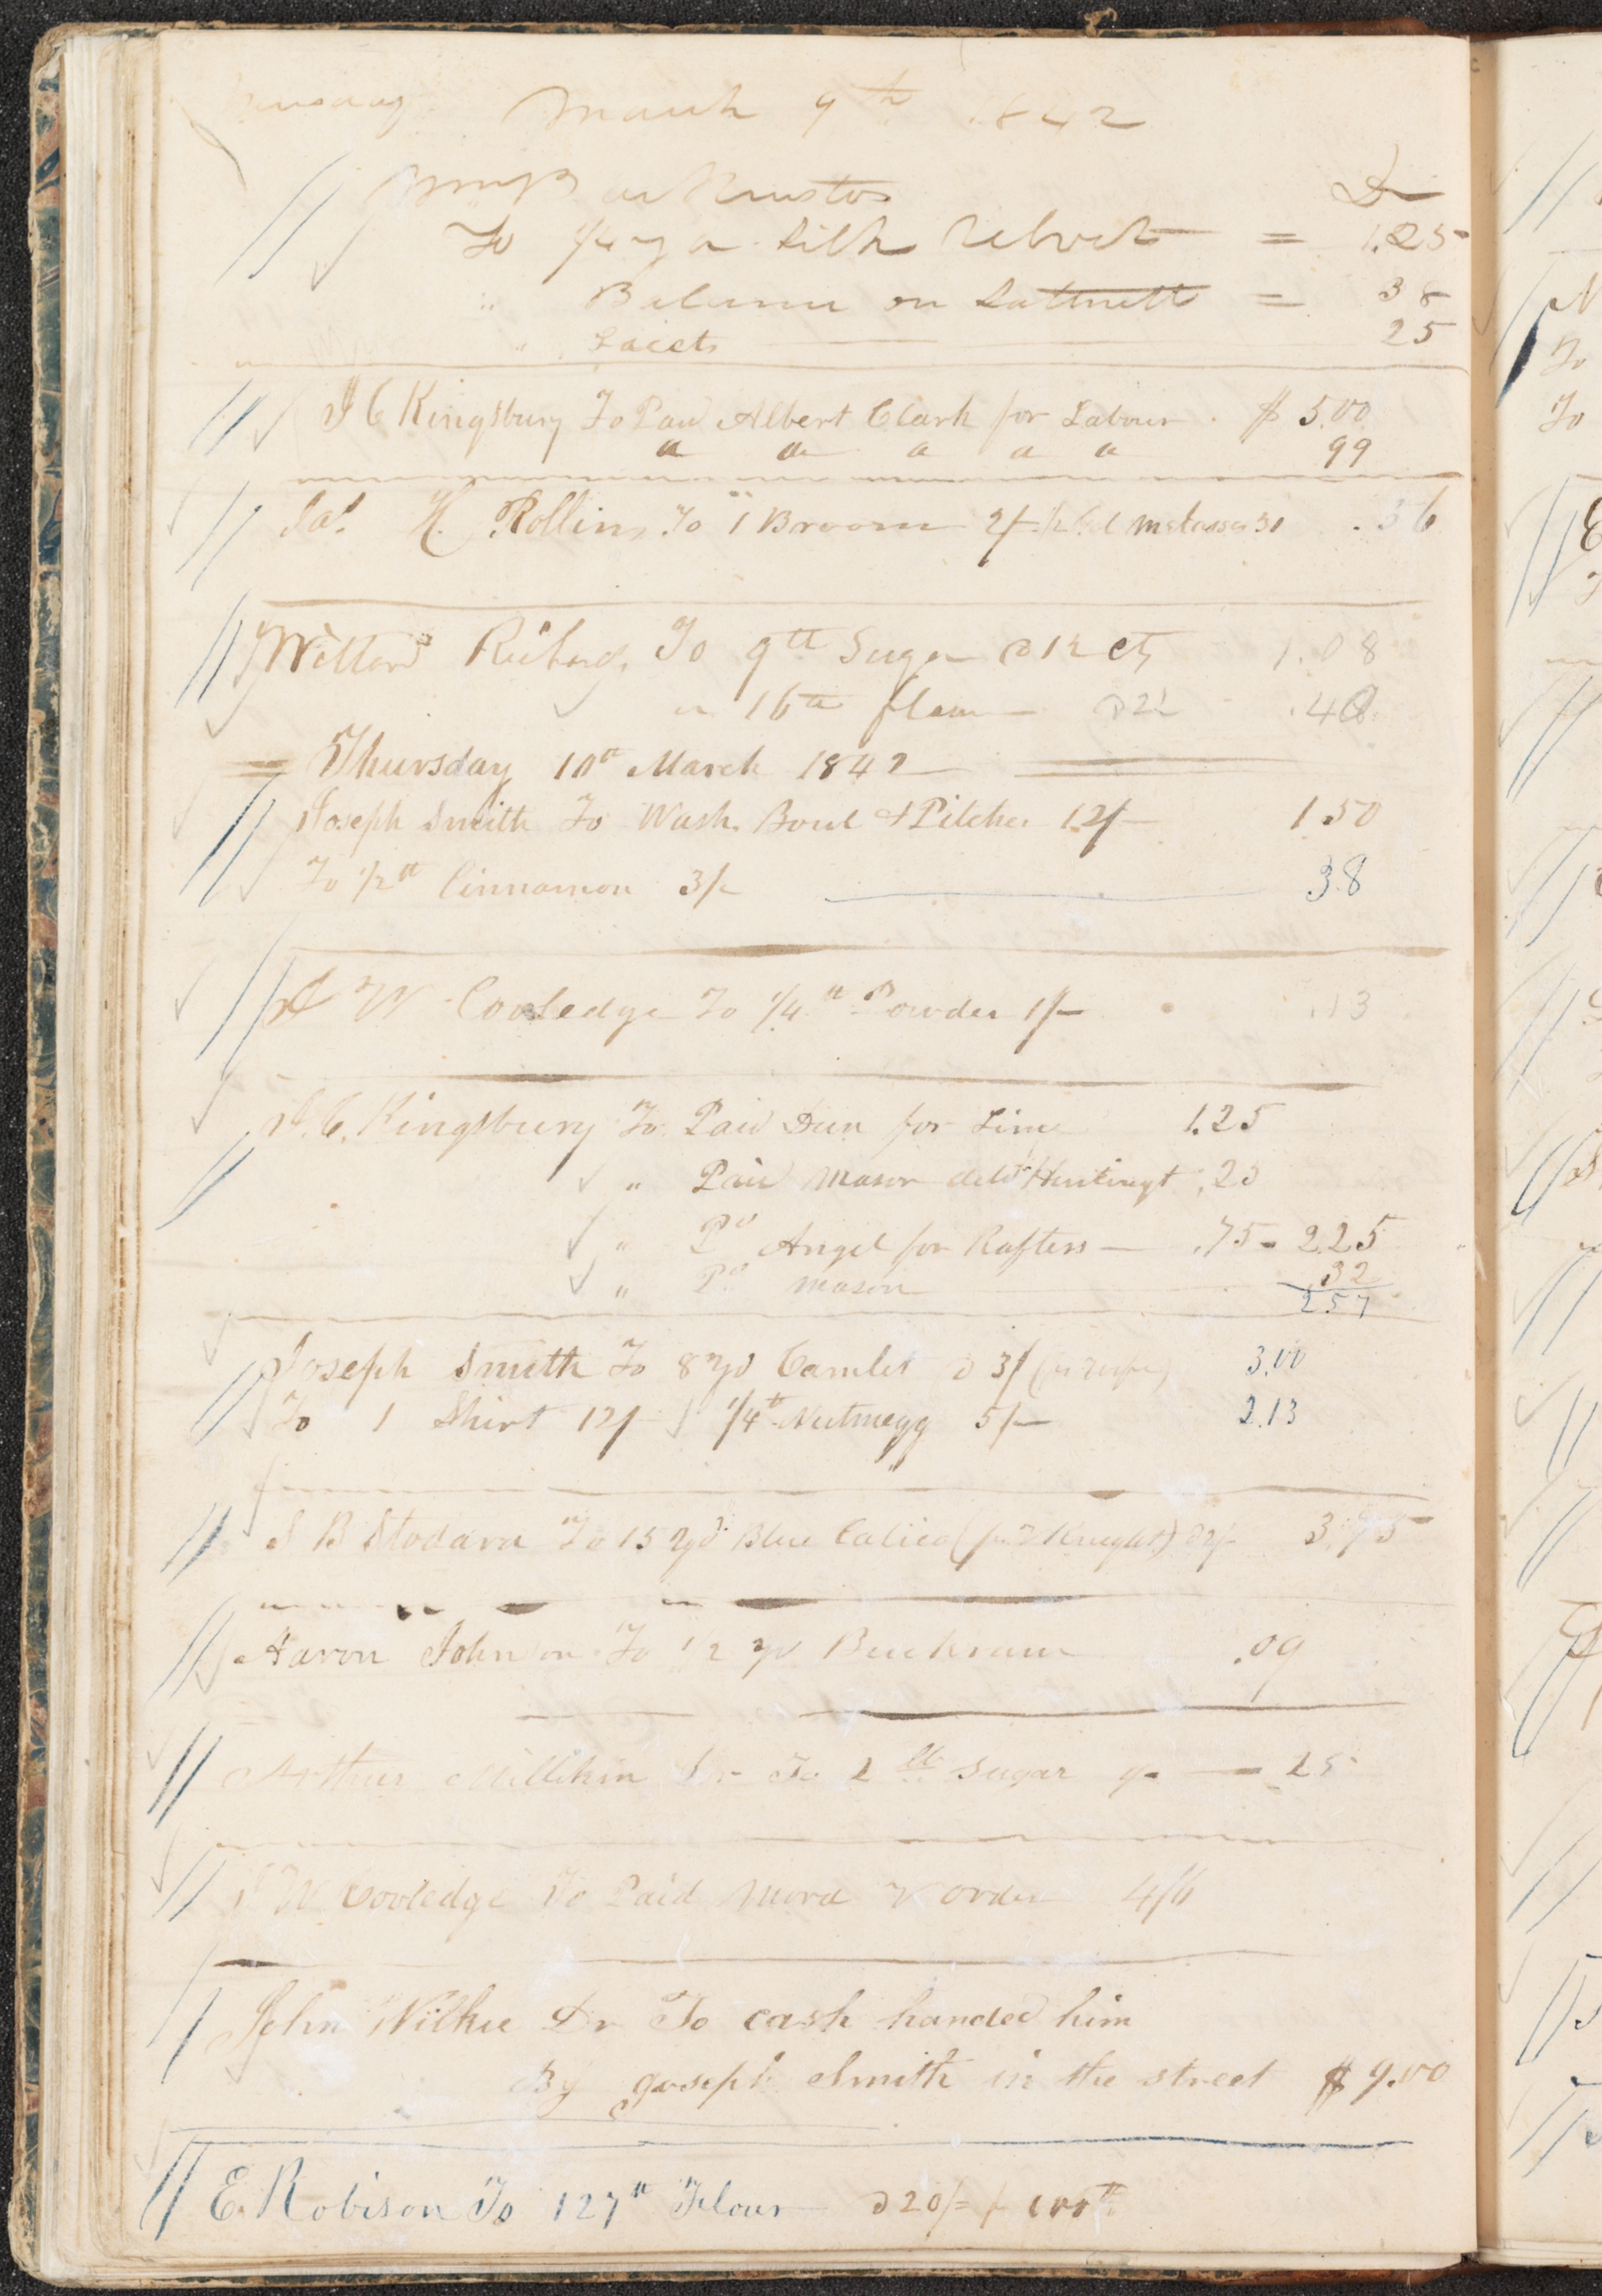 March 9th 1842
Dr
To 1/4 yd Silk Velvet = 1.25
" Balance on Sattinett = 38
" 25
J C Kingsbury To Paid Albert Clark for Labour. $ 5.00
" " " " " 99
Jas. H. Rollins To 1 Broom 2/- Molasses .36
Willard Richards To 9 lb Sugar @ 12 cts 1.08
" 16 lb flour @ 2½ .40
= Thursday 10th March 1842
Joseph Smith To Wash Bowl & Pitcher 12/- 1.50
To 1/2 lb Cinnamon 3/- 38
W Cooledge To 1/4 lb Powder 1/- .13
J. C. Kingsbury To Paid Dun for Lime 1.25
" Paid Mason .25
" Pd Angel for Rafters — .75 - 2.25
" Pd Mason .32
2.57
Joseph Smith To 8 yd Camlet @ 3/ 3.00
To 1 Shirt 12/ 1/4 lb Nutmegg 5/- 2.13
S B Stodard To 15 yd Blue Calico (pr Knight) @ 2/- 3.75
Aaron Johnson To 1/2 yd Buckram .09
Arthur Millikin Dr To 2 lb Sugar — 25
W Cooledge To Paid order 4/6
John Wilkie Dr To cash handed him
By Joseph Smith in the street $ 9.00
E. Robison To 127 lb Flour @ 20/= p 100 lb